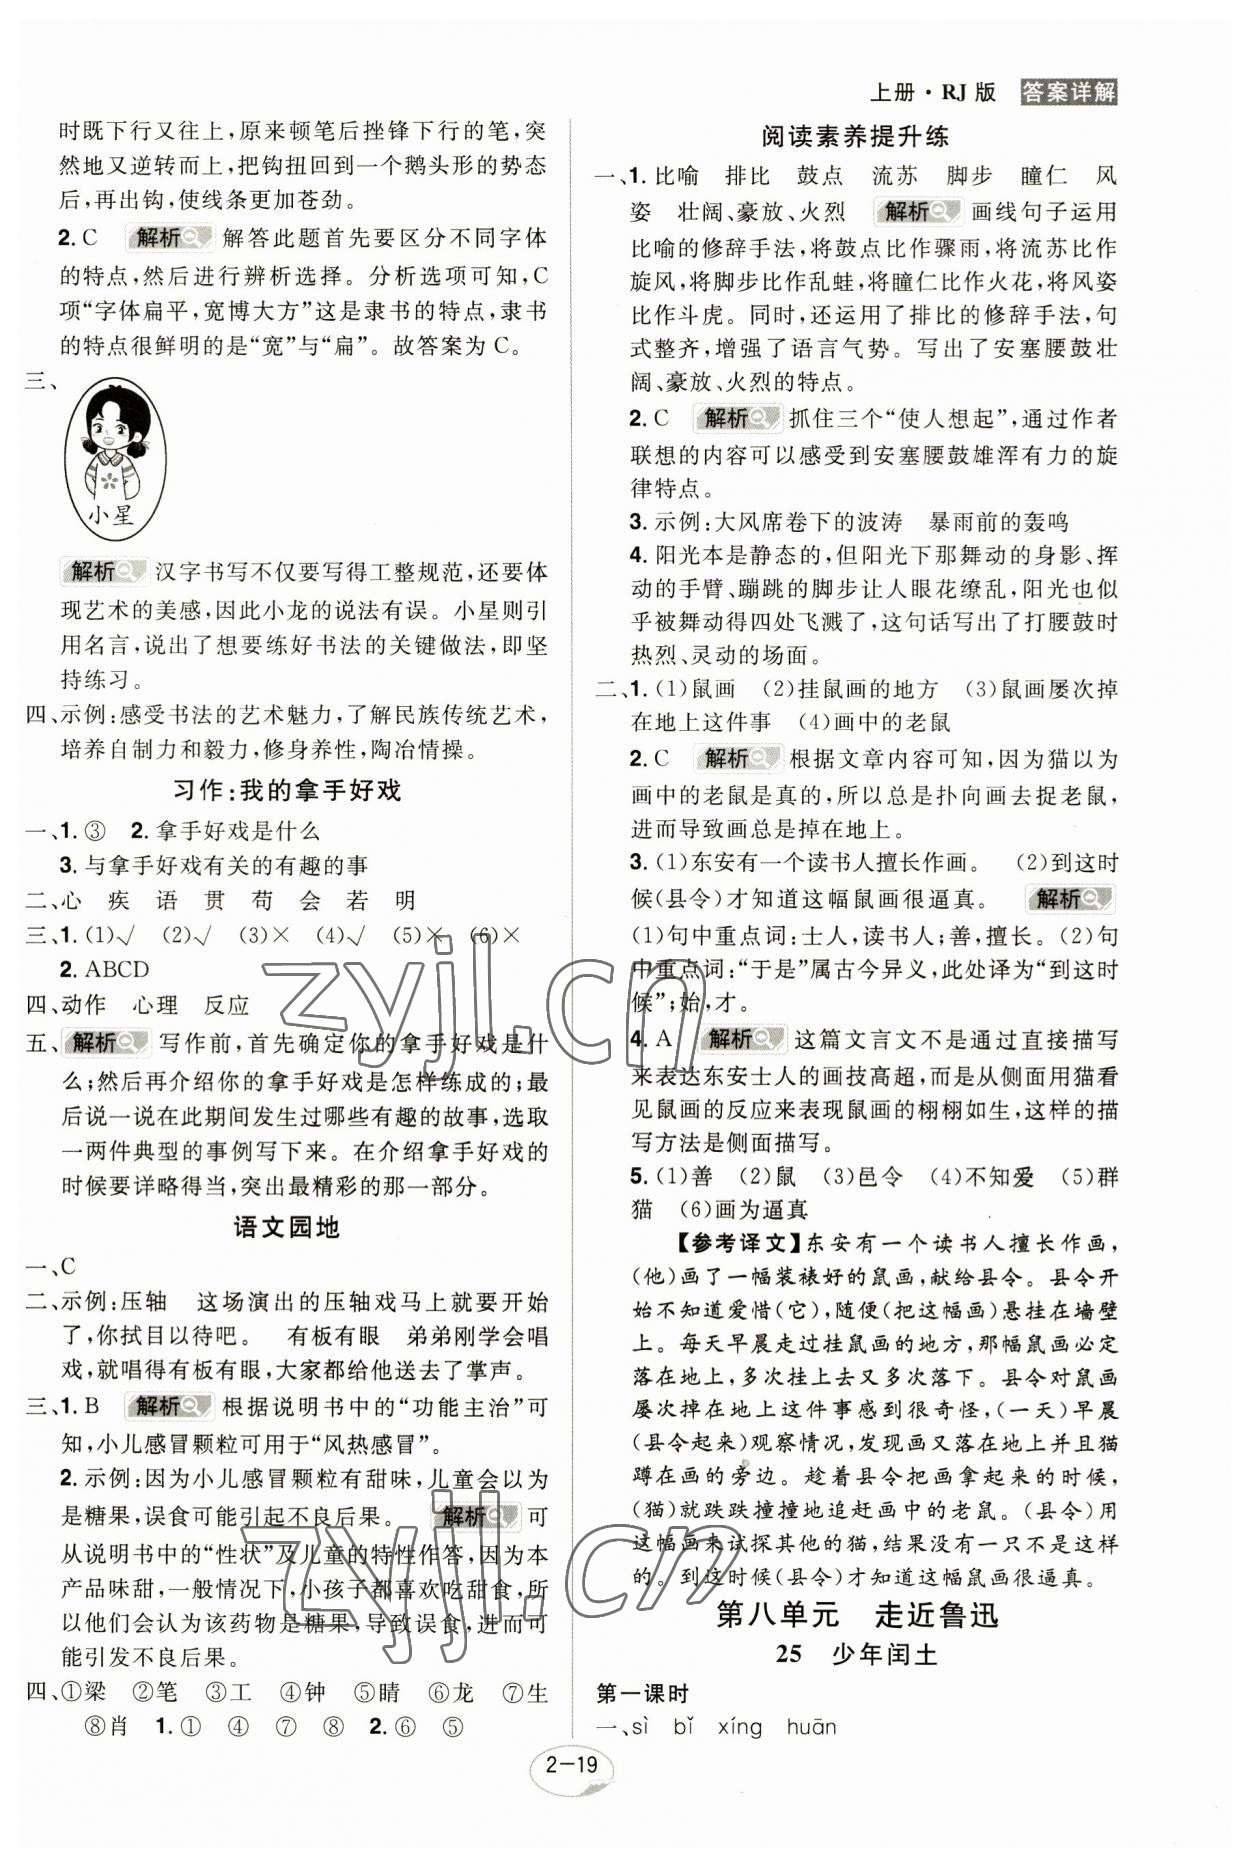 上册·RJ版 答案详解
时既下行又往上,原来顿笔后挫锋下行的笔,突
然地又逆转而上,把钩扭回到一个鹅头形的势态
后,再出钩,使线条更加苍劲。
2. C 解析 解答此题首先要区分不同字体
的特点,然后进行辨析选择。分析选项可知,C
项“字体扁平,宽博大方”这是隶书的特点,隶书
的特点很鲜明的是“宽”与“扁”。故答案为C。
三、
小星
解析 汉字书写不仅要写得工整规范,还要体
现艺术的美感,因此小龙的说法有误。小星则引
用名言,说出了想要练好书法的关键做法,即坚
持练习。
四、示例:感受书法的艺术魅力,了解民族传统艺术,
培养自制力和毅力,修身养性,陶冶情操。
习作:我的拿手好戏
一、1. ③ 2. 拿手好戏是什么
3. 与拿手好戏有关的有趣的事
二、心 疾 语 贯 苟 会 若 明
三、1. (1)√ (2)√ (3)× (4)√ (5)× (6)×
2. ABCD
四、动作 心理 反应
五、解析 写作前,首先确定你的拿手好戏是什
么;然后再介绍你的拿手好戏是怎样练成的;最
后说一说在此期间发生过哪些有趣的故事,选取
一两件典型的事例写下来。在介绍拿手好戏的
时候要详略得当,突出最精彩的那一部分。
语文园地
一、C
二、示例:压轴 这场演出的压轴戏马上就要开始
了,你拭目以待吧。 有板有眼 弟弟刚学会唱
戏,就唱得有板有眼,大家都给他送去了掌声。
三、1. B 解析 根据说明书中的“功能主治”可
知,小儿感冒颗粒可用于“风热感冒”。
2. 示例:因为小儿感冒颗粒有甜味,儿童会以为
是糖果,误食可能引起不良后果。 解析 可
从说明书中的“性状”及儿童的特性作答,因为本
产品味甜,一般情况下,小孩子都喜欢吃甜食,所
以他们会认为该药物是糖果,导致误食,可能会
引发不良后果。
四、①梁 ②笔 ③工 ④钟 ⑤睛 ⑥龙 ⑦生
⑧肖 1. ① ④ ⑦ ⑧ 2. ⑥ ⑤
阅读素养提升练
一、1. 比喻 排比 鼓点 流苏 脚步 瞳仁 风
姿 壮阔、豪放、火烈 解析 画线句子运用
比喻的修辞手法,将鼓点比作骤雨,将流苏比作
旋风,将脚步比作乱蛙,将瞳仁比作火花,将风姿
比作斗虎。同时,还运用了排比的修辞手法,句
式整齐,增强了语言气势。写出了安塞腰鼓壮
阔、豪放、火烈的特点。
2. C 解析 抓住三个“使人想起”,通过作者
联想的内容可以感受到安塞腰鼓雄浑有力的旋
律特点。
3. 示例:大风席卷下的波涛 暴雨前的轰鸣
4. 阳光本是静态的,但阳光下那舞动的身影、挥
动的手臂、蹦跳的脚步让人眼花缭乱,阳光也似
乎被舞动得四处飞溅了,这句话写出了打腰鼓时
热烈、灵动的场面。
二、1. (1)鼠画 (2)挂鼠画的地方 (3)鼠画屡次掉
在地上这件事 (4)画中的老鼠
2. C 解析 根据文章内容可知,因为猫以为
画中的老鼠是真的,所以总是扑向画去捉老鼠,
进而导致画总是掉在地上。
3. (1)东安有一个读书人擅长作画。 (2)到这时
候(县令)才知道这幅鼠画很逼真。 解析
(1)句中重点词:士人,读书人;善,擅长。(2)句
中重点词:“于是”属古今异义,此处译为“到这时
候”;始,才。
4. A 解析 这篇文言文不是通过直接描写
来表达东安士人的画技高超,而是从侧面用猫看
见鼠画的反应来表现鼠画的栩栩如生,这样的描
写方法是侧面描写。
5. (1)善 (2)鼠 (3)邑令 (4)不知爱 (5)群
猫 (6)画为逼真
【参考译文】东安有一个读书人擅长作画,
(他)画了一幅装裱好的鼠画,献给县令。县令开
始不知道爱惜(它),随便(把这幅画)悬挂在墙壁
上。每天早晨走过挂鼠画的地方,那幅鼠画必定
落在地上,多次挂上去又多次落下。县令对鼠画
屡次掉在地上这件事感到很奇怪,(一天)早晨
(县令起来)观察情况,发现画又落在地上并且猫
蹲在画的旁边。趁着县令把画拿起来的时候,
(猫)就跌跌撞撞地追赶画中的老鼠。(县令)用
这幅画来试探其他的猫,结果没有一只不是这样
的。到这时候(县令)才知道这幅鼠画很逼真。
第八单元 走近鲁迅
25 少年闰土
第一课时
一、sì bǐ xíng huān
2-19
zyjl.cn
zyjl.cn